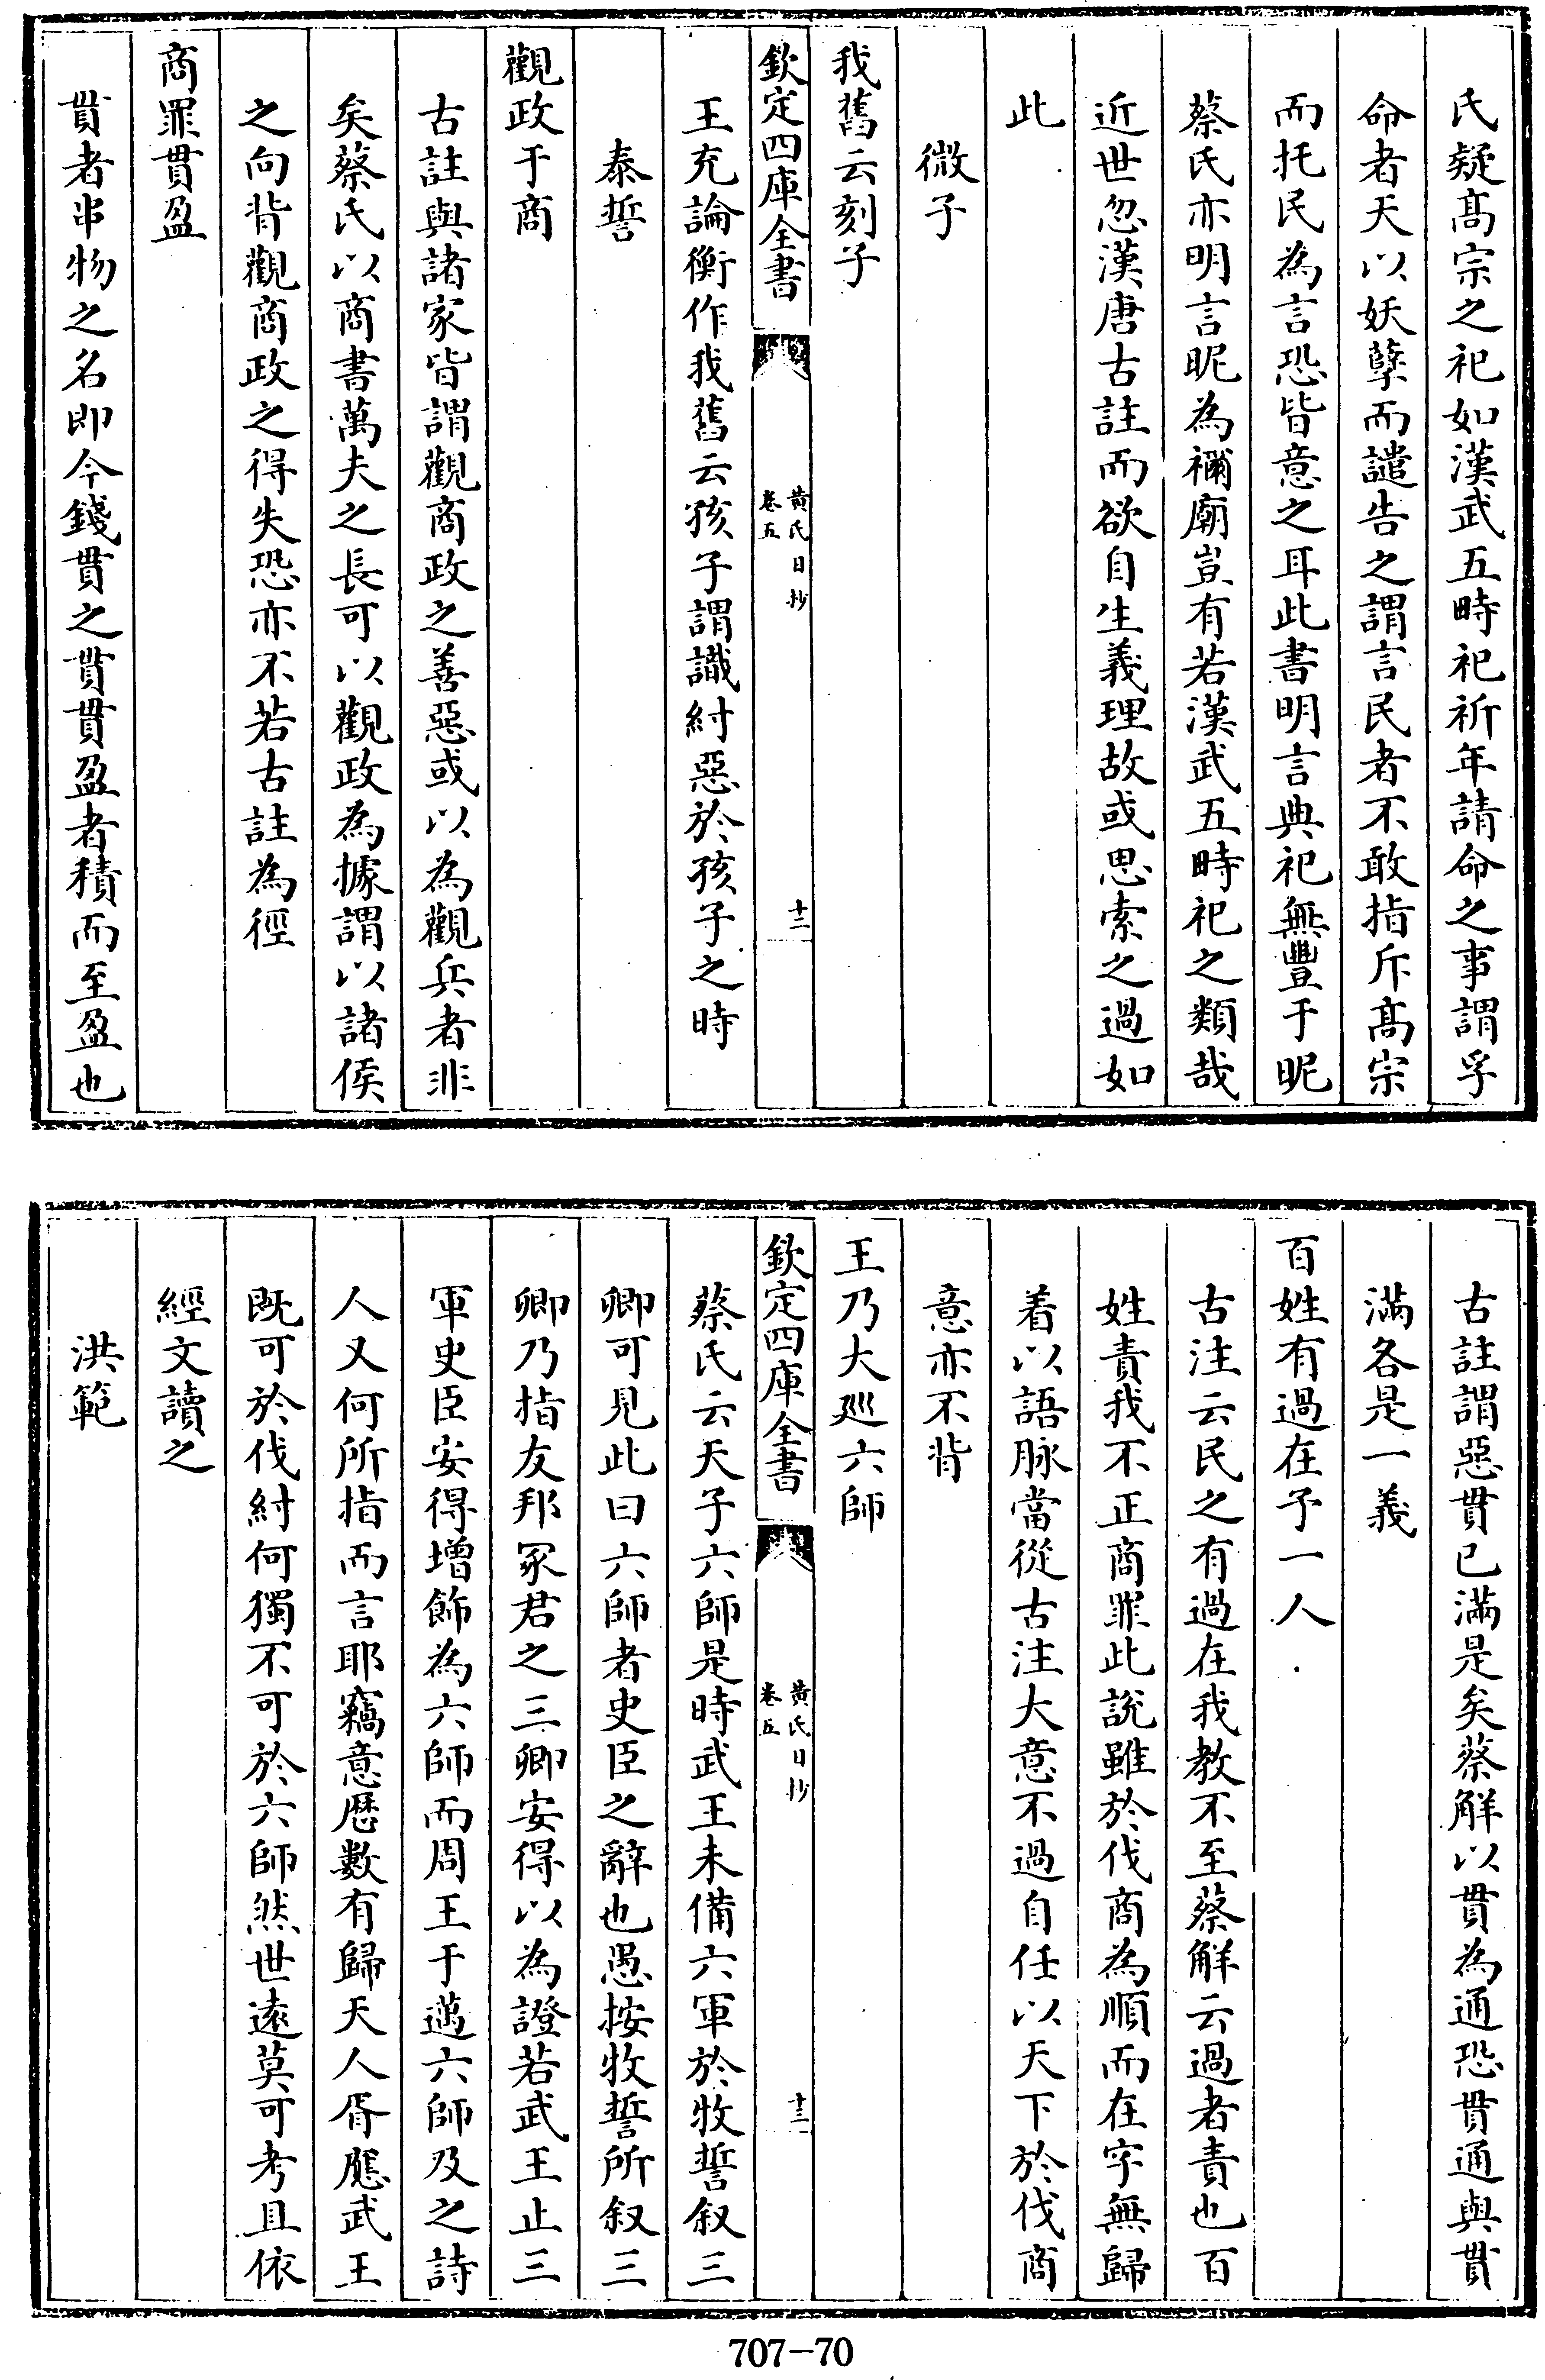 氏疑髙宗之祀如漢武五畤祀祈年請命之事謂孚
命者天以妖孽而譴告之謂言民者不敢指斥髙宗
而托民為言恐皆意之耳此書明言典祀無豐于昵
蔡氏亦明言昵為禰廟豈有若漢武五畤祀之類哉
近世忽漢唐古註而欲自生義理故或思索之過如
此
微子
我舊云刻子
欽定四庫全書
黄氏日抄
卷五
十二
王充論衡作我舊云孩子謂識紂惡於孩子之時
泰誓
觀政于商
古註與諸家皆謂觀商政之善惡或以為觀兵者非
矣蔡氏以商書萬夫之長可以觀政為據謂以諸侯
之向背觀商政之得失恐亦不若古註為徑
商罪貫盈
貫者串物之名即今錢貫之貫貫盈者積而至盈也
古註謂惡貫已滿是矣蔡解以貫為通恐貫通與貫
滿各是一義
百姓有過在予一人
古注云民之有過在我教不至蔡解云過者責也百
姓責我不正商罪此説雖於伐商為順而在字無歸
着以語脉當從古注大意不過自任以天下於伐商
意亦不背
王乃大廵六師
欽定四庫全書
黄氏日抄
卷五
十三
蔡氏云天子六師是時武王未備六軍於牧誓叙三
卿可見此曰六師者史臣之辭也愚按牧誓所叙三
卿乃指友邦冢君之三卿安得以為證若武王止三
軍史臣安得增飾為六師而周王于邁六師及之詩
人又何所指而言耶竊意歴數有歸天人胥應武王
既可於伐紂何獨不可於六師然世逺莫可考且依
經文讀之
洪範
707-70